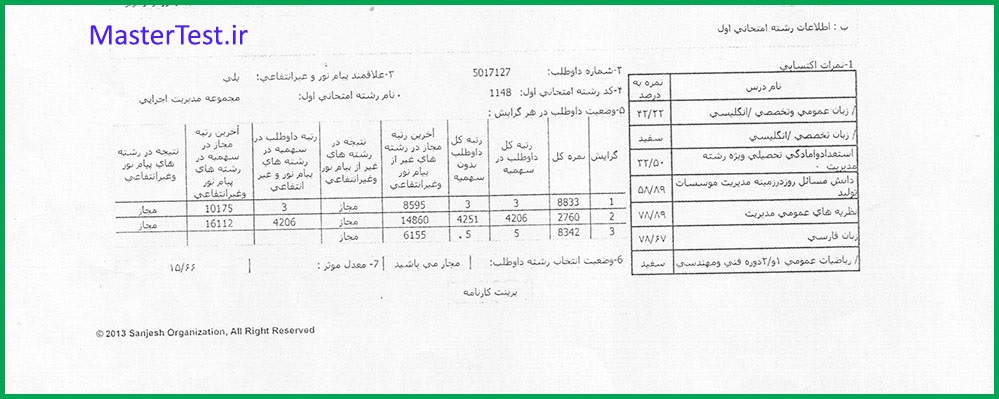 MasterTest.ir
ب : اطلاعات رشته امتحاني اول
1-نمرات اكتسابي
نام درس نمره به درصد
/ زبان عمومي وتخصصي /انگليسي ۴۲/۲۲
/ زبان تخصصي /انگليسي سفيد
استعدادوامادگي تحصيلي ويژه رشته مديريت ۳۲/۵۰
دانش مسائل روزدرزمينه مديريت موسسات توليد ۵۸/۸۹
نظريه هاي عمومي مديريت ۷۸/۸۹
زبان فارسي ۷۸/۶۷
/ رياضيات عمومي ۱و۲/دوره فني ومهندسي سفيد
۲-شماره داوطلب: 5017127 ۳-علاقمند پيام نور و غيرانتفاعي: بلي
۴-كد رشته امتحاني اول: 1148 نام رشته امتحاني اول: مجموعه مديريت اجرايي
۵-وضعيت داوطلب در هر گرايش :
گرايش
نمره كل
رتبه كل داوطلب در سهميه
رتبه كل داوطلب بدون سهميه
آخرين رتبه مجاز در رشته هاي غير از پيام نور وغيرانتفاعي
نتيجه در رشته هاي غير از پيام نور وغيرانتفاعي
رتبه داوطلب در سهميه در رشته هاي پيام نور و غير انتفاعي
آخرين رتبه مجاز در سهميه در رشته هاي پيام نور وغيرانتفاعي
نتيجه در رشته هاي پيام نور وغيرانتفاعي
1 8833 3 3 8595 مجاز 3 10175 مجاز
2 2760 4206 4251 14860 مجاز 4206 16112 مجاز
3 8342 5 5 6155 مجاز
6-وضعيت انتخاب رشته داوطلب: مجاز مي باشيد 7- معدل موثر : ۱۵/۶۶
پرينت كارنامه
© 2013 Sanjesh Organization, All Right Reserved